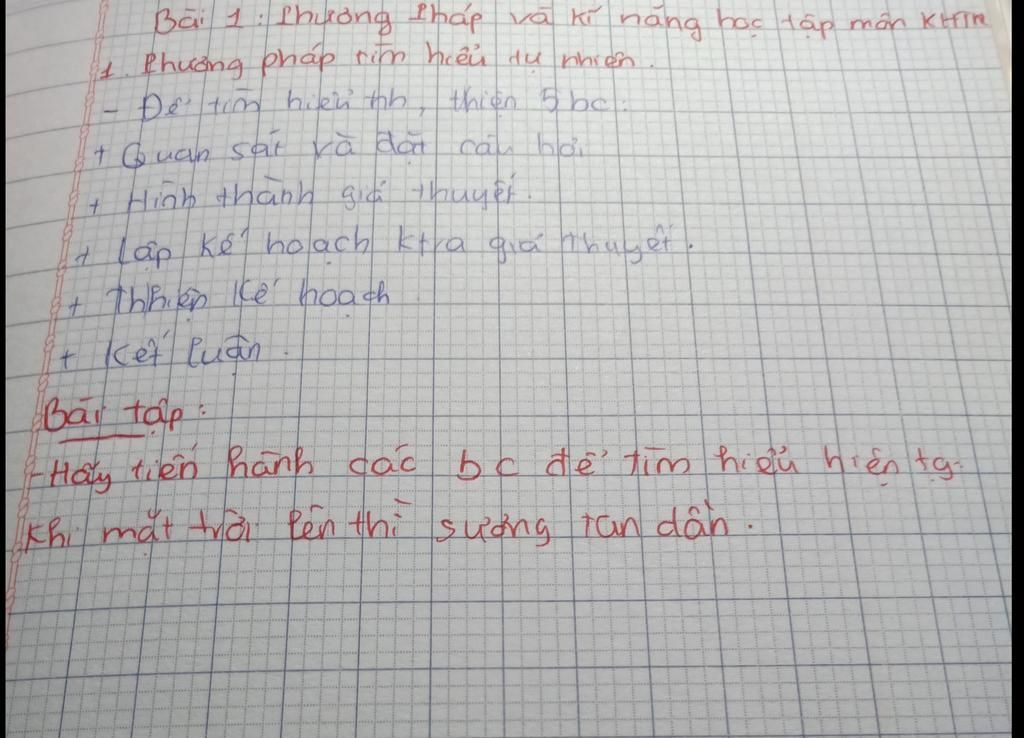 Bài 1: Phương Pháp và kĩ năng học tập môn KHTN
1. Phương pháp tìm hiểu tự nhiên.
- Để tìm hiểu th, thiện 5 bc:
+ Quan sát và đặt câu hỏi
+ Hình thành giả thuyết.
+ Lập kế hoạch ktra giả thuyết.
+ Thhiện kế hoạch
+ Kết luận.
Bài tập:
- Hãy tiến hành các bc để tìm hiểu hiện tg.
khi mặt trời lên thì sương tan dần.